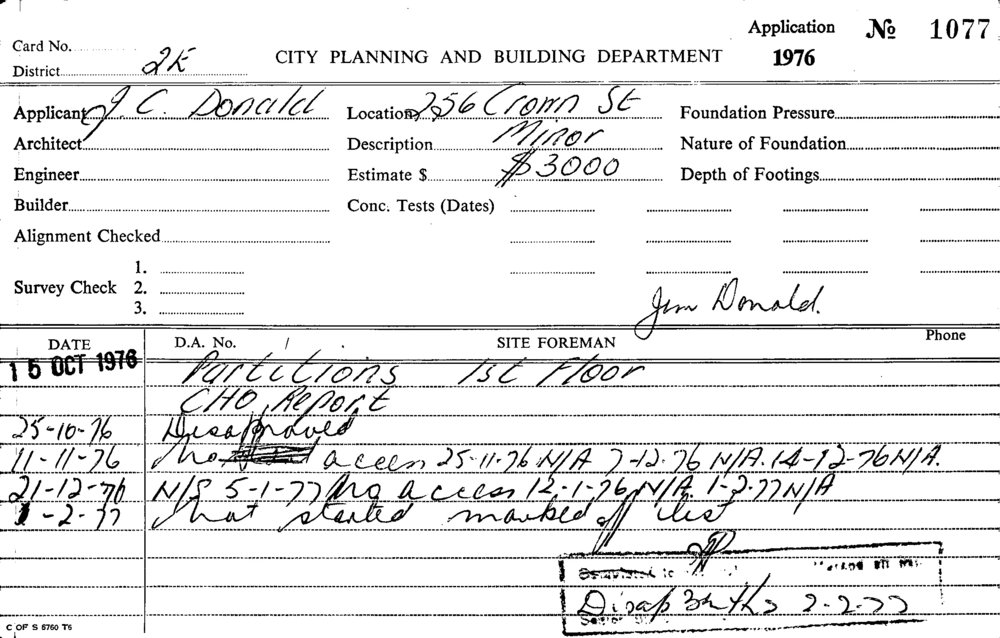 Application № 1077
Card No.
District 2E CITY PLANNING AND BUILDING DEPARTMENT 1976
Applicant J. C. Donald Location 256 Crown St Foundation Pressure
Architect Description Minor Nature of Foundation
Engineer Estimate $ $3000 Depth of Footings
Builder Conc. Tests (Dates)
Alignment Checked
1.
Survey Check 2.
3.
Jim Donald.
DATE D.A. No. / . SITE FOREMAN Phone
15 OCT 1976 Partitions 1st Floor
CHO Report
25-10-76 Disapproved
11-11-76 No access 25-11-76 N/A 7-12-76 N/A. 14-12-76 N/A.
21-12-76 N/S 5-1-77 No access 12-1-76 N/A 1-2-77 N/A
1-2-77 Not started marked off list
to
Disap 3mths 2-2-77
C OF S 5760 T6